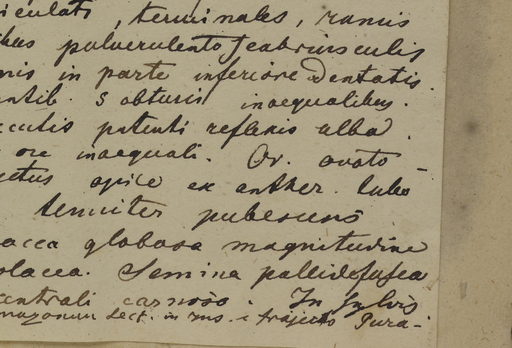 iculati, terminales, ramis
ibus pulverulento scabriusculis
nis in parte inferiore dentatis.
ntib. 5 obtusis inaequalibus.
acutis patenti reflexis alba.
ore inaequali. Ov. ovato-
apice ex anther. tubo
tenuiter pubescens
bacca globosa magnitudine
olacea. Semina pallide fusca
centrali carnoso. In sylvis
mazonum lect. in ms. e trajecto Para-